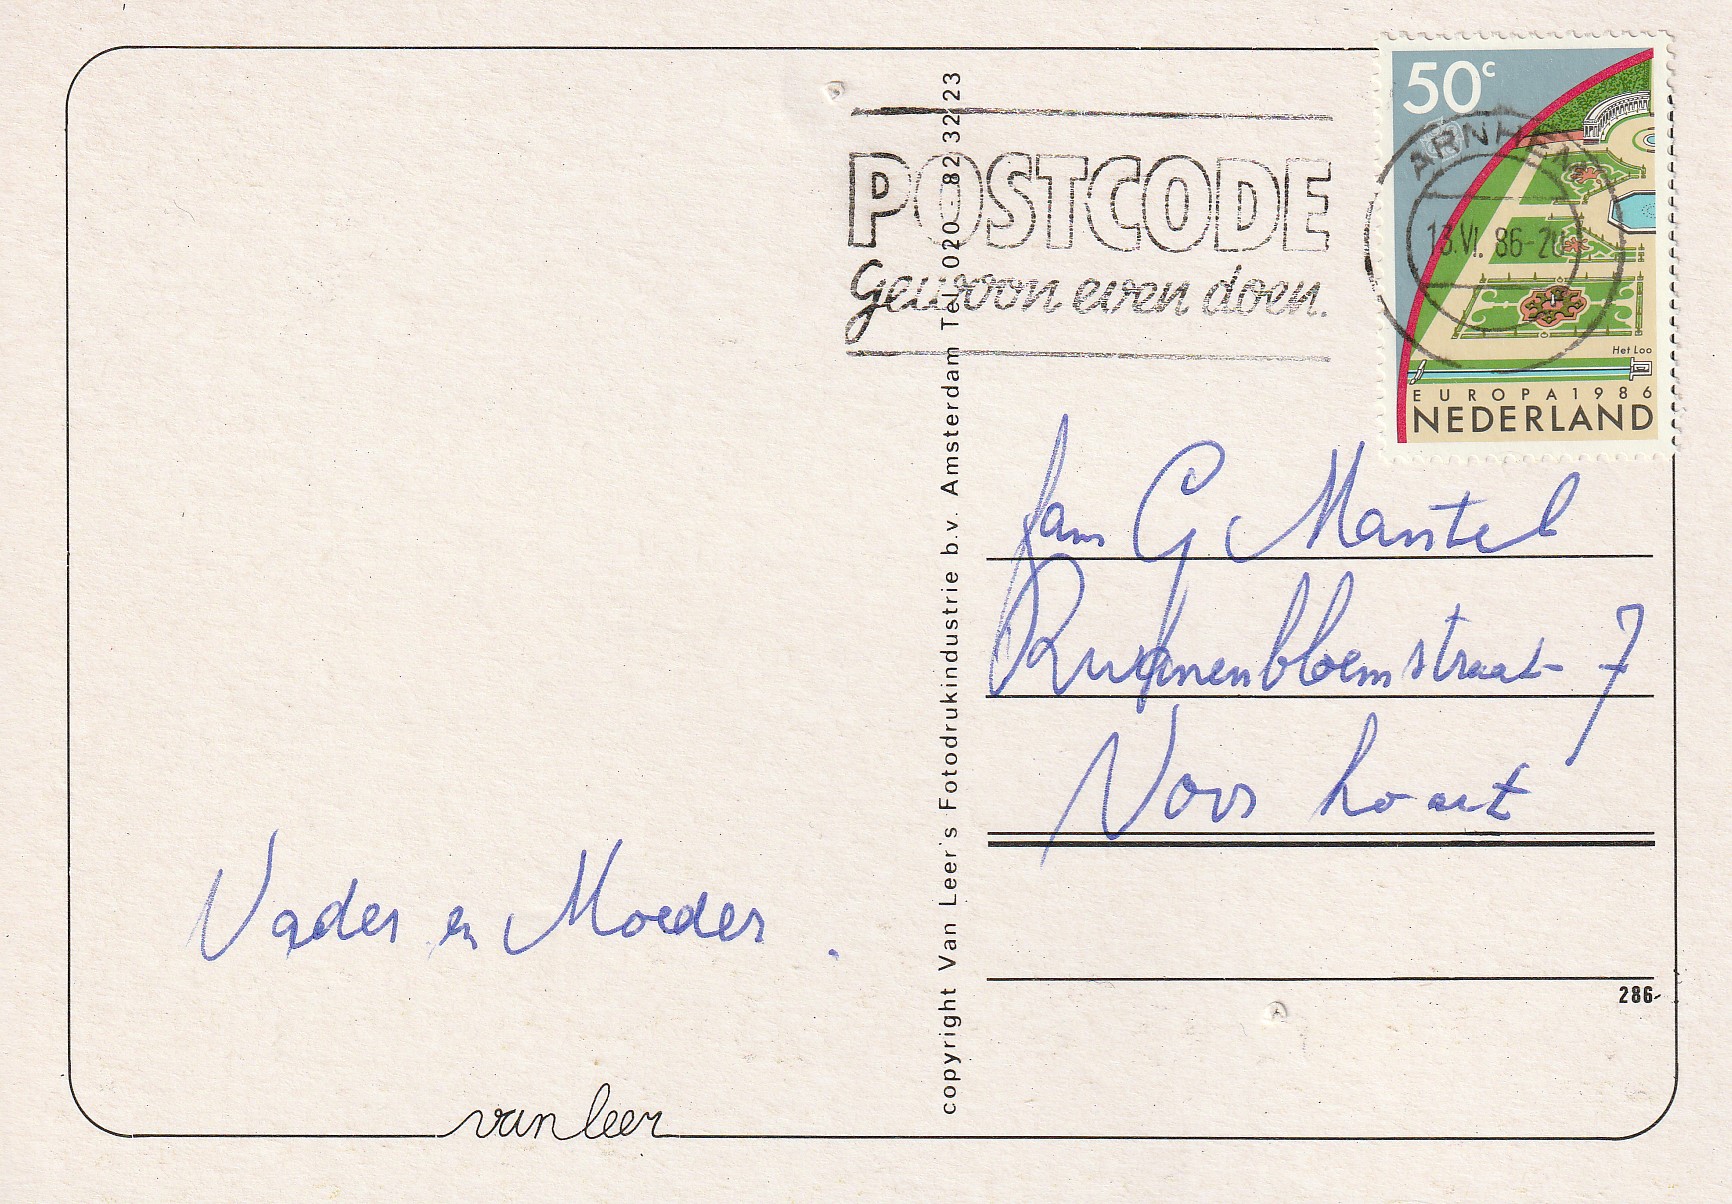 POSTCODE
Gewoon even doen.
50c
ARNHEM
13.VI. 86-20
Het Loo
EUROPA 1986
NEDERLAND
Jan G Mantel
7
Voorhout
Vader en Moeder.
copyright Van Leer's Fotodrukindustrie b.v. Amsterdam Tel. 020-823223
286-
van leer